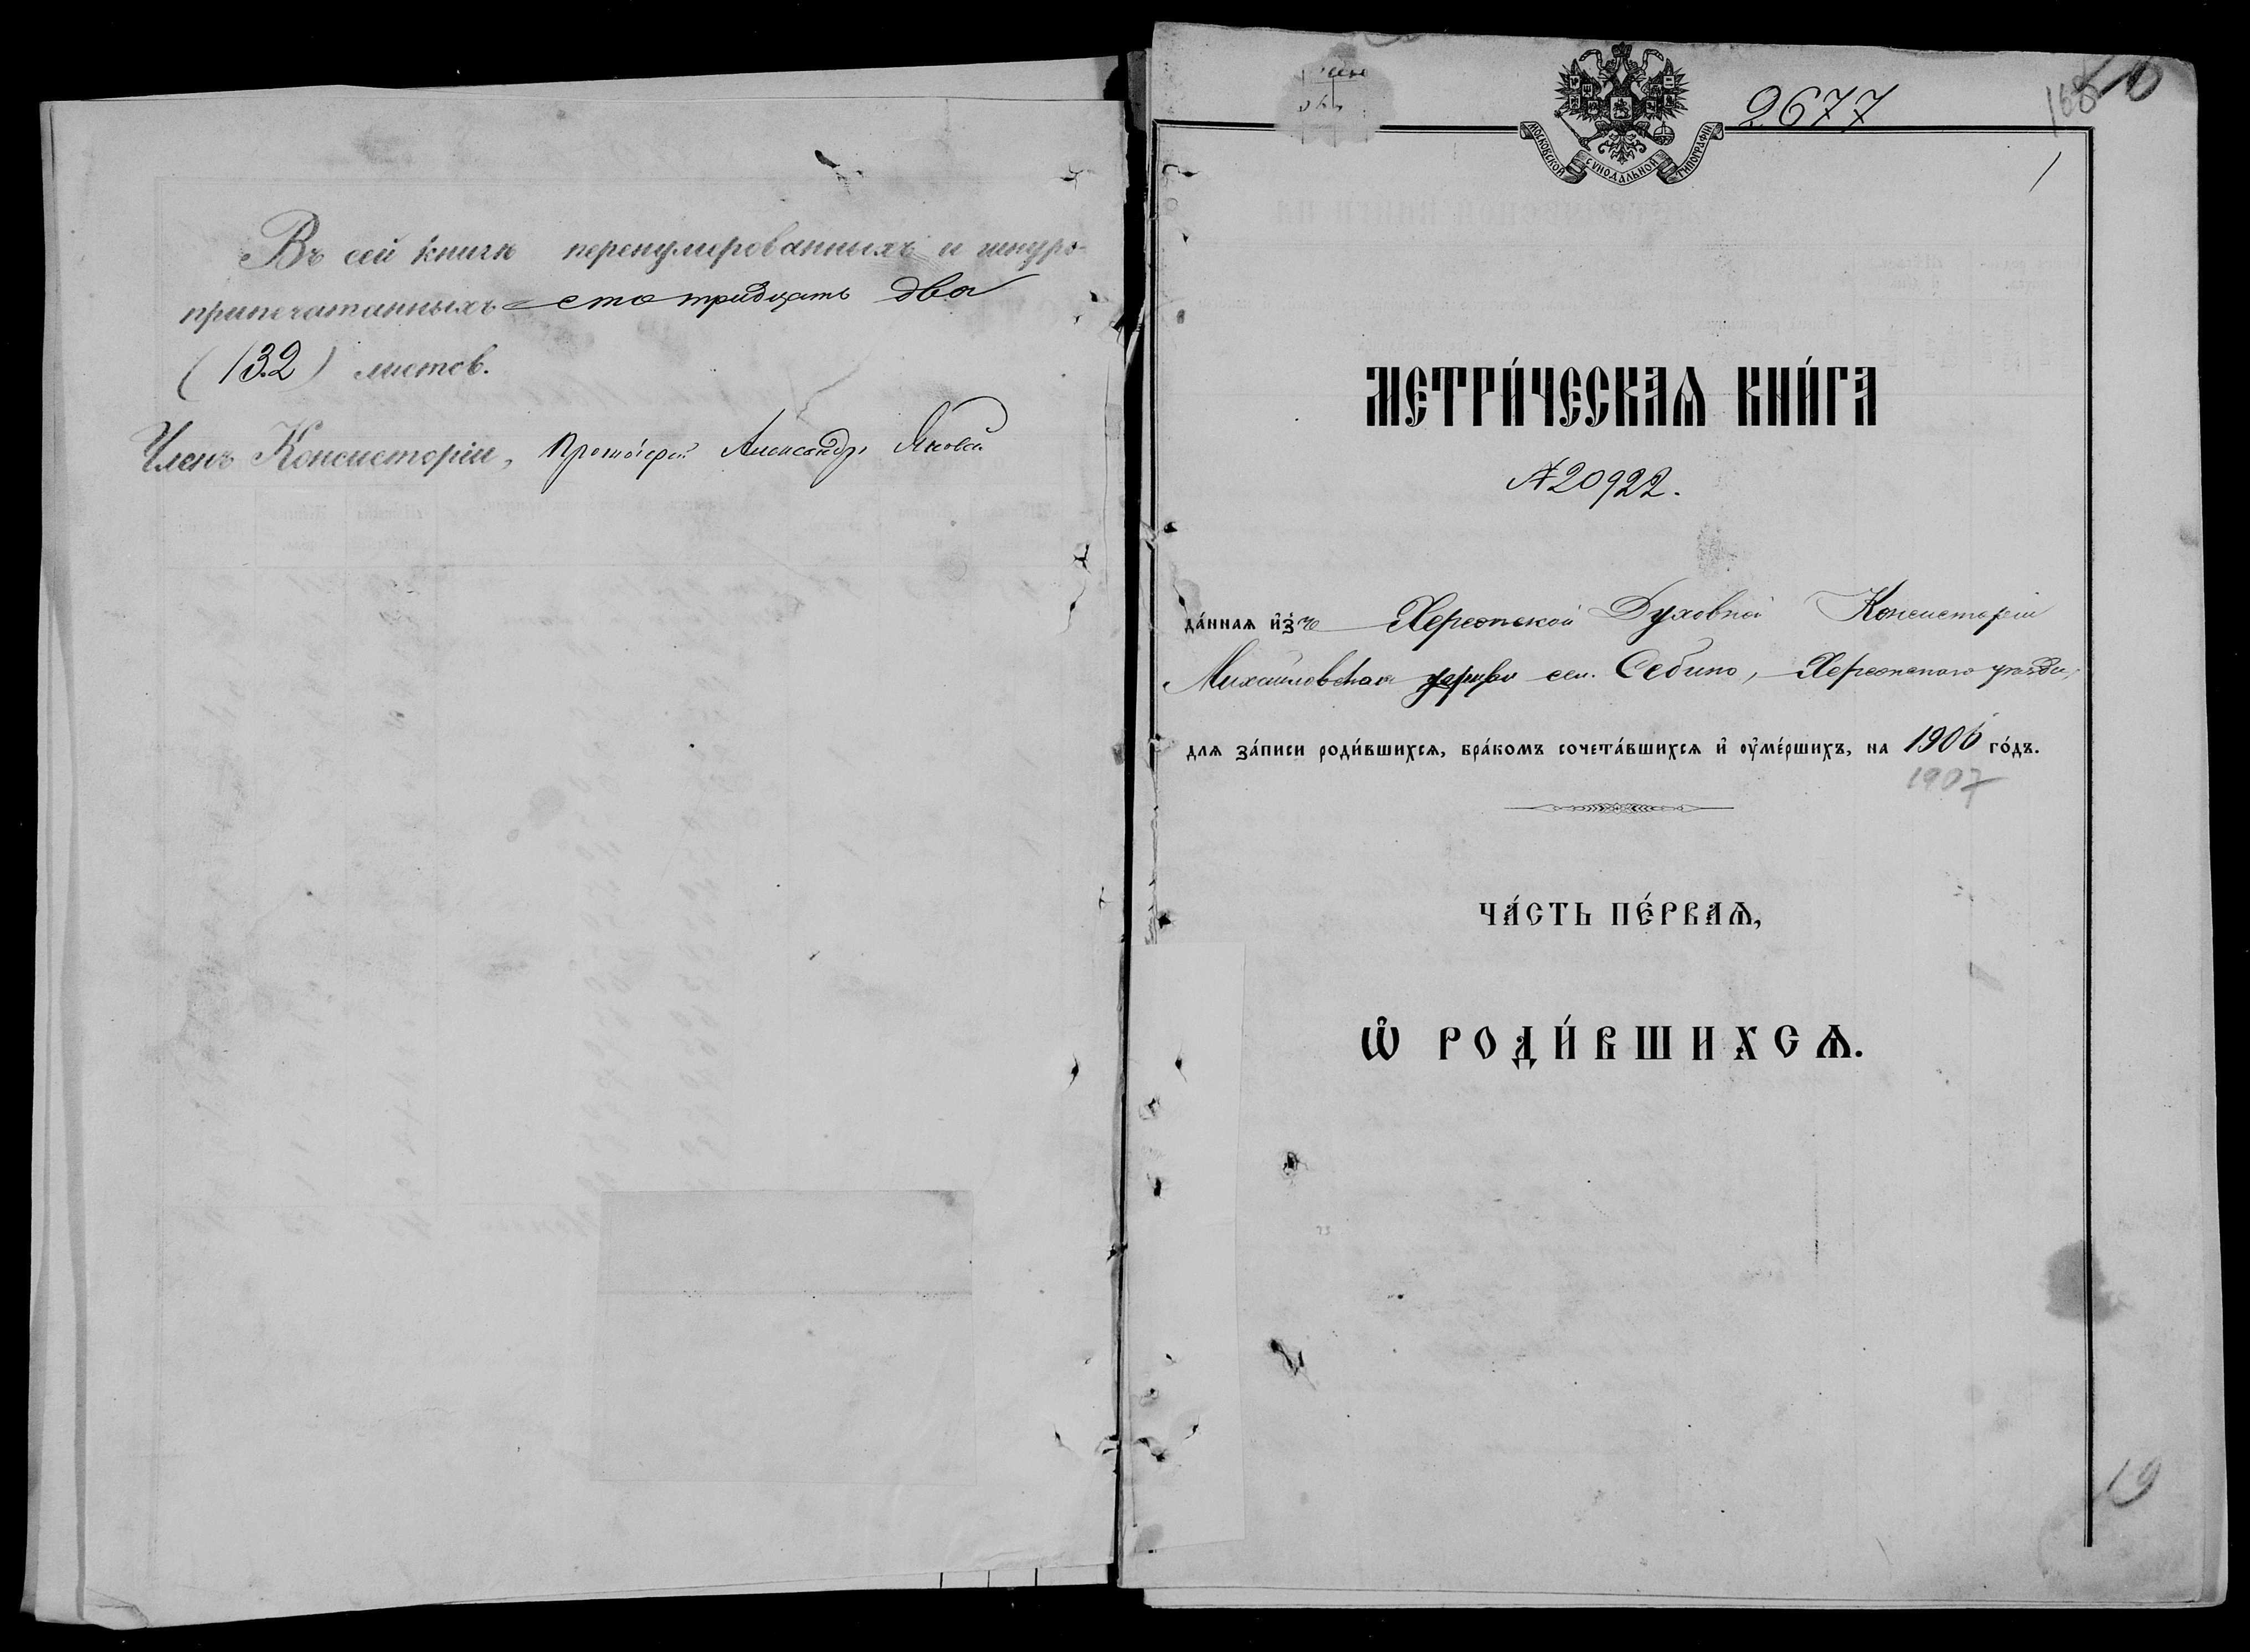 Въ сей книгѣ перенумерованныхъ и шнуро-
припечатанныхъ сто тридцать два
(132) листов.
Членъ Консисторіи, Протоіерей Александръ
2677
168
МОСКОВСКОЙ СѴНОДАЛЬНОЙ ТИПОГРАФІИ
МЕТРИ́ЧЕСКАѦ КНИ́ГА
№ 20922.
да́ннаѧ и҆зъ Херсонской Духовной Консисторіи
Михайловской церкви сел. Себино, Херсонскаго уѣзда,
длѧ за́писи роди́вшихсѧ, бра́комъ сочета́вшихсѧ и҆ ᲂу҆ме́ршихъ, на 1906 го́дъ.
1907
ЧА́СТЬ ПЕ́РВАѦ,
Ѽ РОДИ́ВШИХСѦ.
19